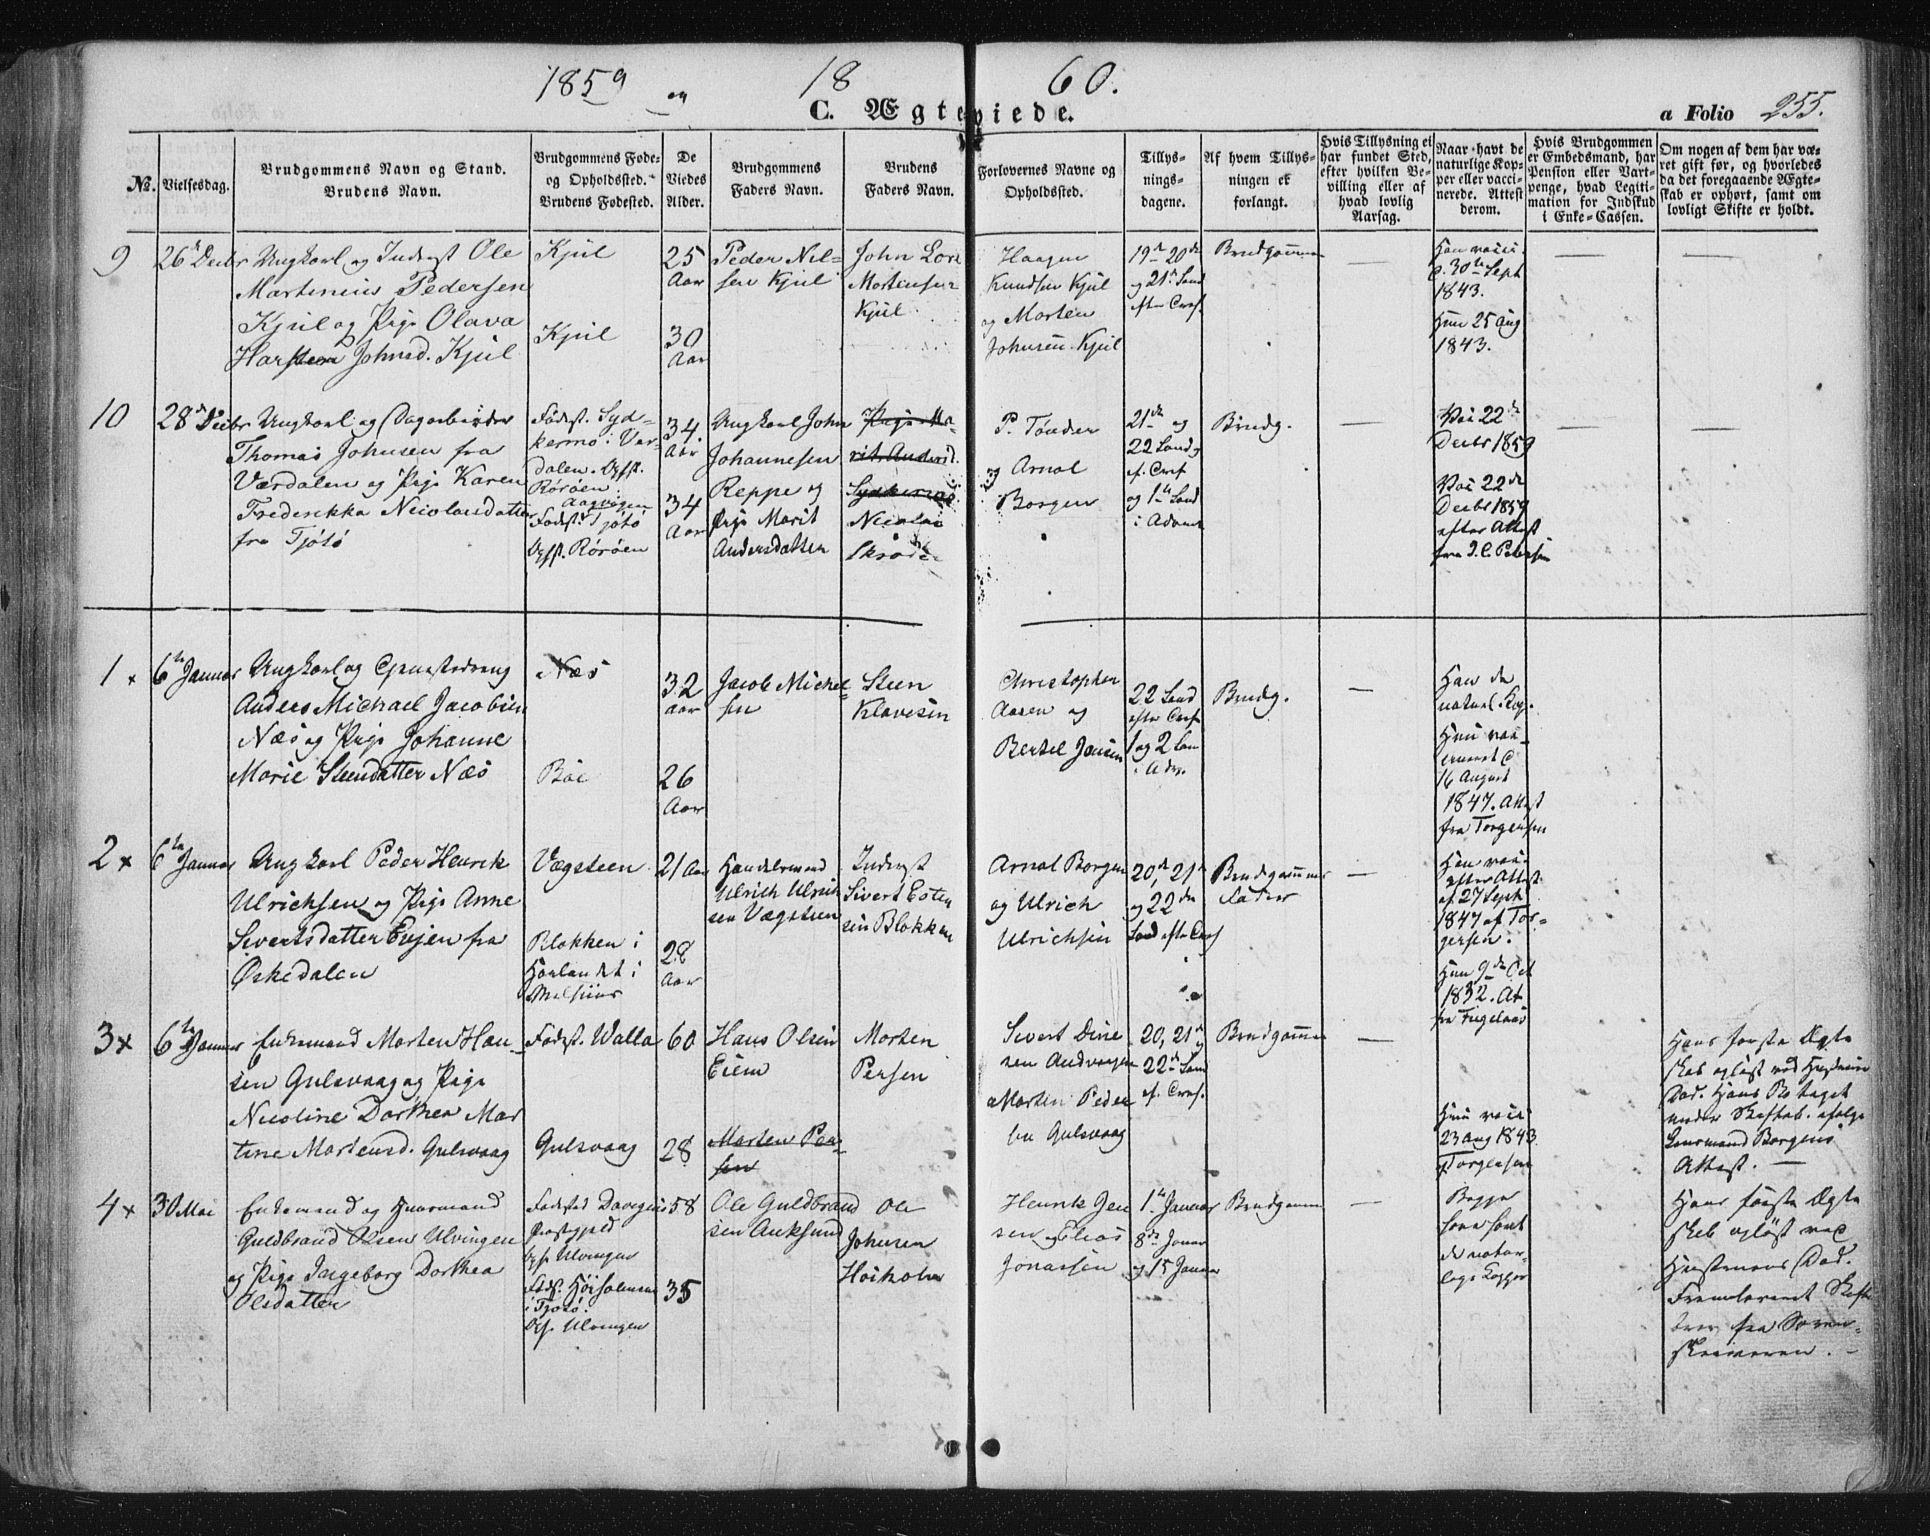 1859 og 1860.
C. Ægteviede.
a Folio 255.
No.
Vielsesdag.
Brudgommens Navn og Stand.
Brudens Navn.
Brudgommens Føde-
og Opholdssted.
Brudens Fødested.
De
Viedes
Alder.
Brudgommens
Faders Navn.
Brudens
Faders Navn.
Forlovernes Navne og
Opholdssted.
Tillys-
nings-
dagene.
Af hvem Tillys-
ningen er
forlangt.
Hvis Tillysning ei
har fundet Sted,
efter hvilken Be-
villing eller af
hvad lovlig
Aarsag.
Naar havt de
naturlige Kop-
per eller vacci-
nerede. Attest
derom.
Hvis Brudgommen
er Embedsmand, har
Pension eller Vart-
penge, hvad Legiti-
mation for Indskud
i Enke-Cassen.
Om nogen af dem har væ-
ret gift før, og hvorledes
da det foregaaende Ægte-
skab er ophørt, samt om
lovligt Skifte er holdt.
9
26de Decbr
Ungkarl og Inderst Ole
Martinius Pedersen
Kjul og Pige Olava
Johnsd. Kjul
Kjul
Kjul
25
Aar
30
Aar
Peder Nil-
sen Kjul
John
Mortensen
Kjul
Haagen
Knudsen Kjul
og Morten
Johnsen Kjul
19de 20de
og 21de Sønd
efter
Brudgommen
—
Han vacci
30te Sept
1843.
Hun 25 Aug
1843.
—
—
10
28de Decbr
Ungkarl og Dagarbeider
Thomas Johnsen fra
Værdalen og Pige Karen
Frederikka Nicolaisdatter
fra Tjøtø
Fødest. Syd-
kermo i Vær-
dalen. Opst.
Rørøen
Fødst. Tjøtø
Opst. Rørøen
34.
Aar
34
Aar
Ungkarl John
Johannesen
Reppe og
Pige Marit
Andersdatter
Pige Ma-
rit Andersd.
Nicolai
P. Tønder
og Arnol
Borgen
21de og
22 Sønd
ef.
og 1ste Sønd
i Advent
Brudg.
—
Vac 22de
Decbr 1859
Vac 22de
Decbr 1859
efter Attest
fra I. C. Petersen
—
—
1 x
6te Januar
Ungkarl og Tjenestedreng
Anders Michael Jacobsen
Næs og Pige Johanne
Marie Steensdatter Næs
Næs
Bøe
32
Aar
26
Aar
Jacob Michel-
sen
Steen
Klavesen
Christopher
Aasen og
Bertel Jonsen
22 Sønd
efter
1 og 2 Søn
i Adv.
Brudg.
—
Han de
naturl. Kop.
Hun vac-
cineret d
16 August
1847. Attest
fra Torgersen
2 x
6te Januar
Ungkarl Peder Henrik
Ulrichsen og Pige Anne
Sivertsdatter Evjen fra
Ørkedalen
Vægsteen
Blokken i
i
21 Aar
28
Aar
Handelsmand
Ulrich Ulrich
sen Vægsteen
Inderst
Sivert Esten
sen Blokken
Arnol Borgen
og Ulrich
Ulrichsen
20de, 21de
og 22de
Sønd efter
Brudgommens
Fader
—
Han vacc.
efter Attest
af 27 Sept
1847 af Tor-
gersen.
Hun 9de Oct
1832. At
fra
3 x
6te Januar
Enkemand Morten Han-
sen Gulsvaag og Pige
Nicoline Dorthea Mar
tine Mortensd. Gulsvaag
Fødst. Walla
Gulsvaag
60
28
Hans Olsen
Eiem
Morten Per-
sen
Morten
Persen
Sivert Dine
sen Andvaagen
Morten Peder
sen Gulsvaag
20, 21de og
22de Sønd
ef.
Brudgommen
Hun vacci
23 Aug 1843
Torgersen
Hans første Ægte
skab opløst ved Hustruens
Død. Hans Bo taget
under Skiftebh. ifølge
Lensmand Borgens
Attest. —
4 x
30 Mai
Enkemand og Huusmand
Guldbrand Olsen Ulvingen
og Pige Ingeborg Dorthea
Olsdatter
Fødested
Præstegjeld
Op. Ulvingen
Fødst. Høiholmen
i Tjøtø.
Op. Ulvingen
58
35
Ole Guldbrand
sen
Ole
Johnsen
Høiholm
Henrik Jen
sen og Elias
Jonassen
1ste Januar
8de Januar
og 15 Januar
Brudgommen
—
Begge
have havt
de natur-
lige Kopper
Hans første Ægte
skab opløst ved
Hustruens Død.
Fremleveret Skifte
brev fra Soren-
skriveren. —